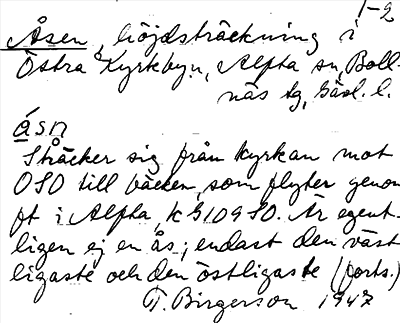 1-2
Åsen, höjdsträckning i
Östra Kyrkbyn, Alfta sn, Boll-
näs tg, Gävl. l.
åsn
Sträcker sig från kyrkan mot
OSO till bäcken, som flyter genom
ft i Alfta, k G109 SO. Är egent-
ligen ej en ås; endast den väst
ligaste och den östligaste (forts.)
T. Birgerson 1947